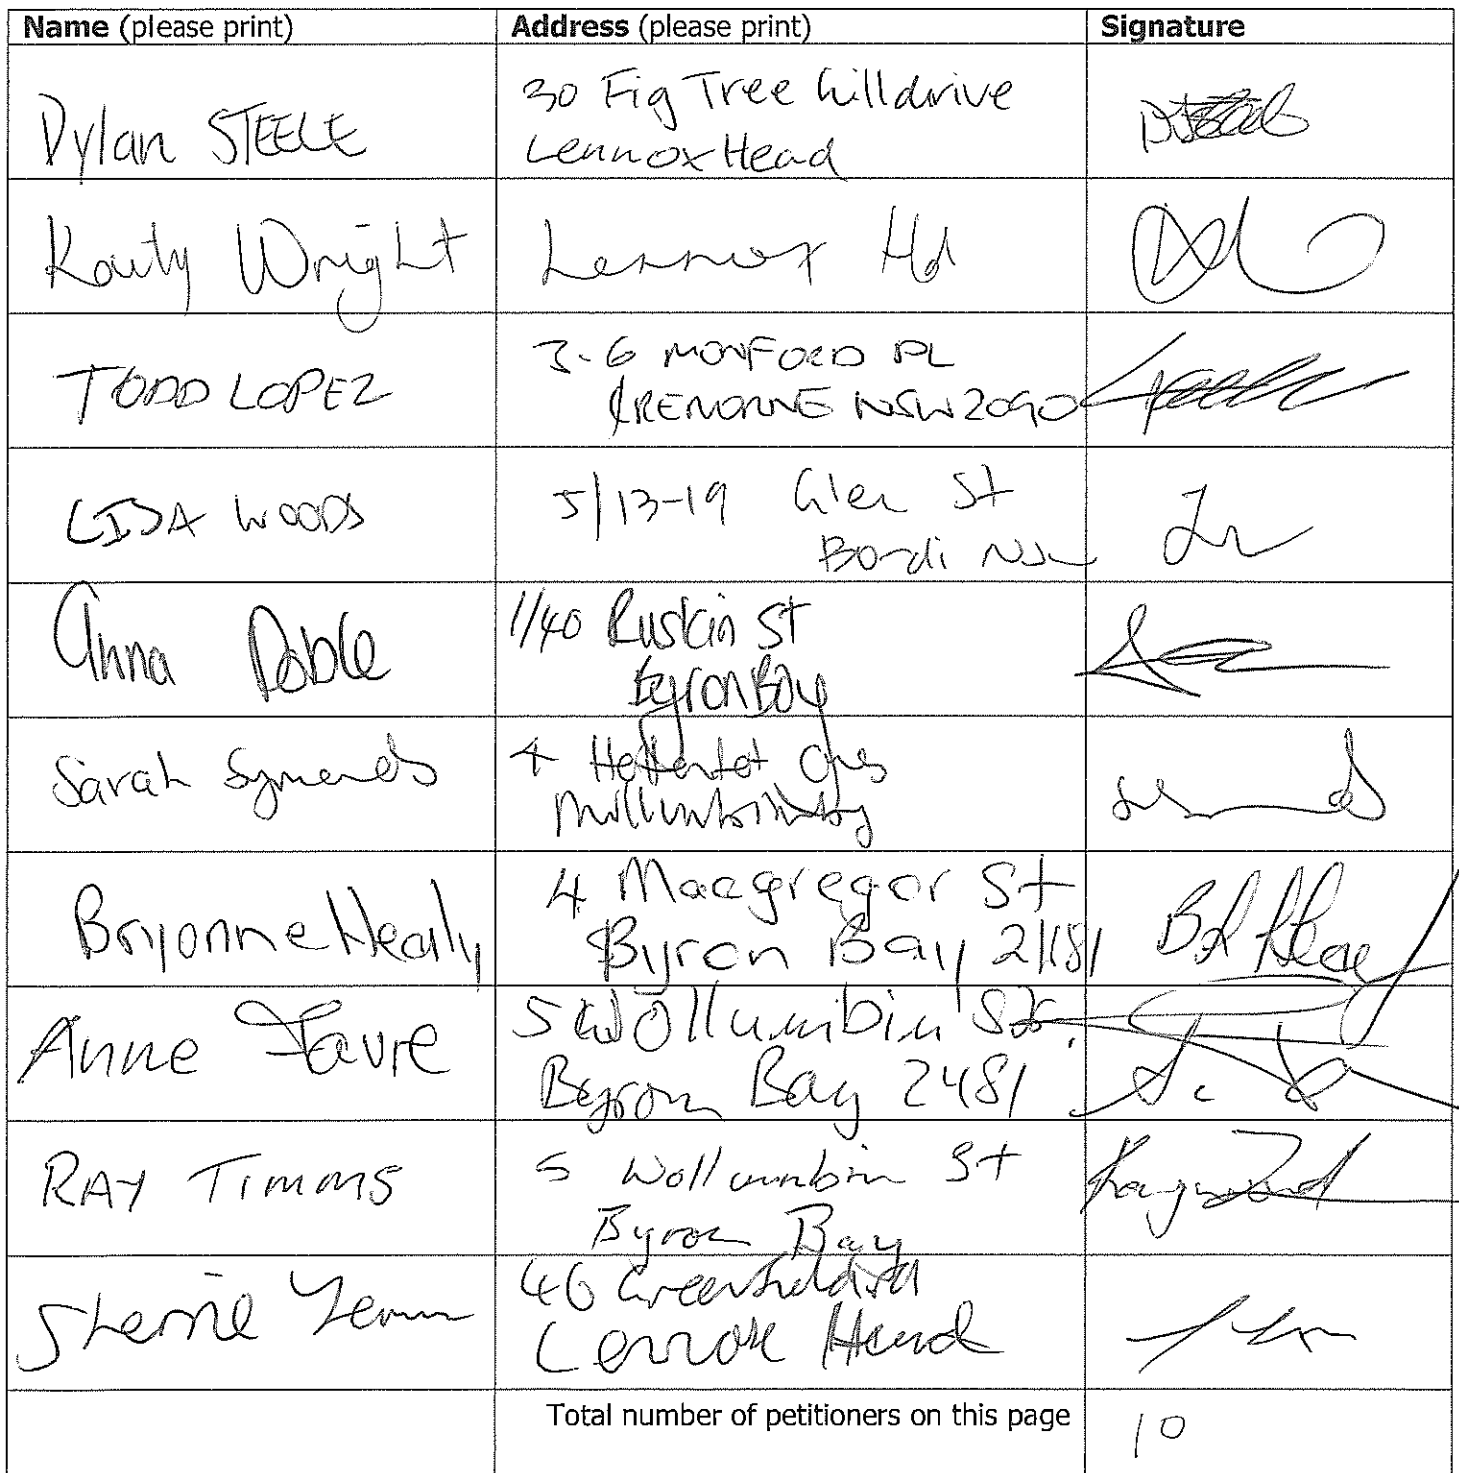 Name (please print) Address (please print) Signature
Dylan STEELE 30 Fig Tree hilldrive
Lennox Head
Wright Lennox Hd
TODD LOPEZ 3-6 MONFORD PL
CREMORNE NSW 2090
LISA WOODS 5/13-19 Glen St
Bondi NSW
Anna Doble 1/40 Ruskin St
Byron Bay
Sarah Symonds 4 Hottentot Cres
Mullumbimby
Bryonne Healy 4 Macgregor St
Byron Bay 2481
Anne Favre 5 Wollumbin St.
Byron Bay 2481
RAY TIMMS 5 Wollumbin St
Byron Bay
46
Lennox Head
Total number of petitioners on this page 10